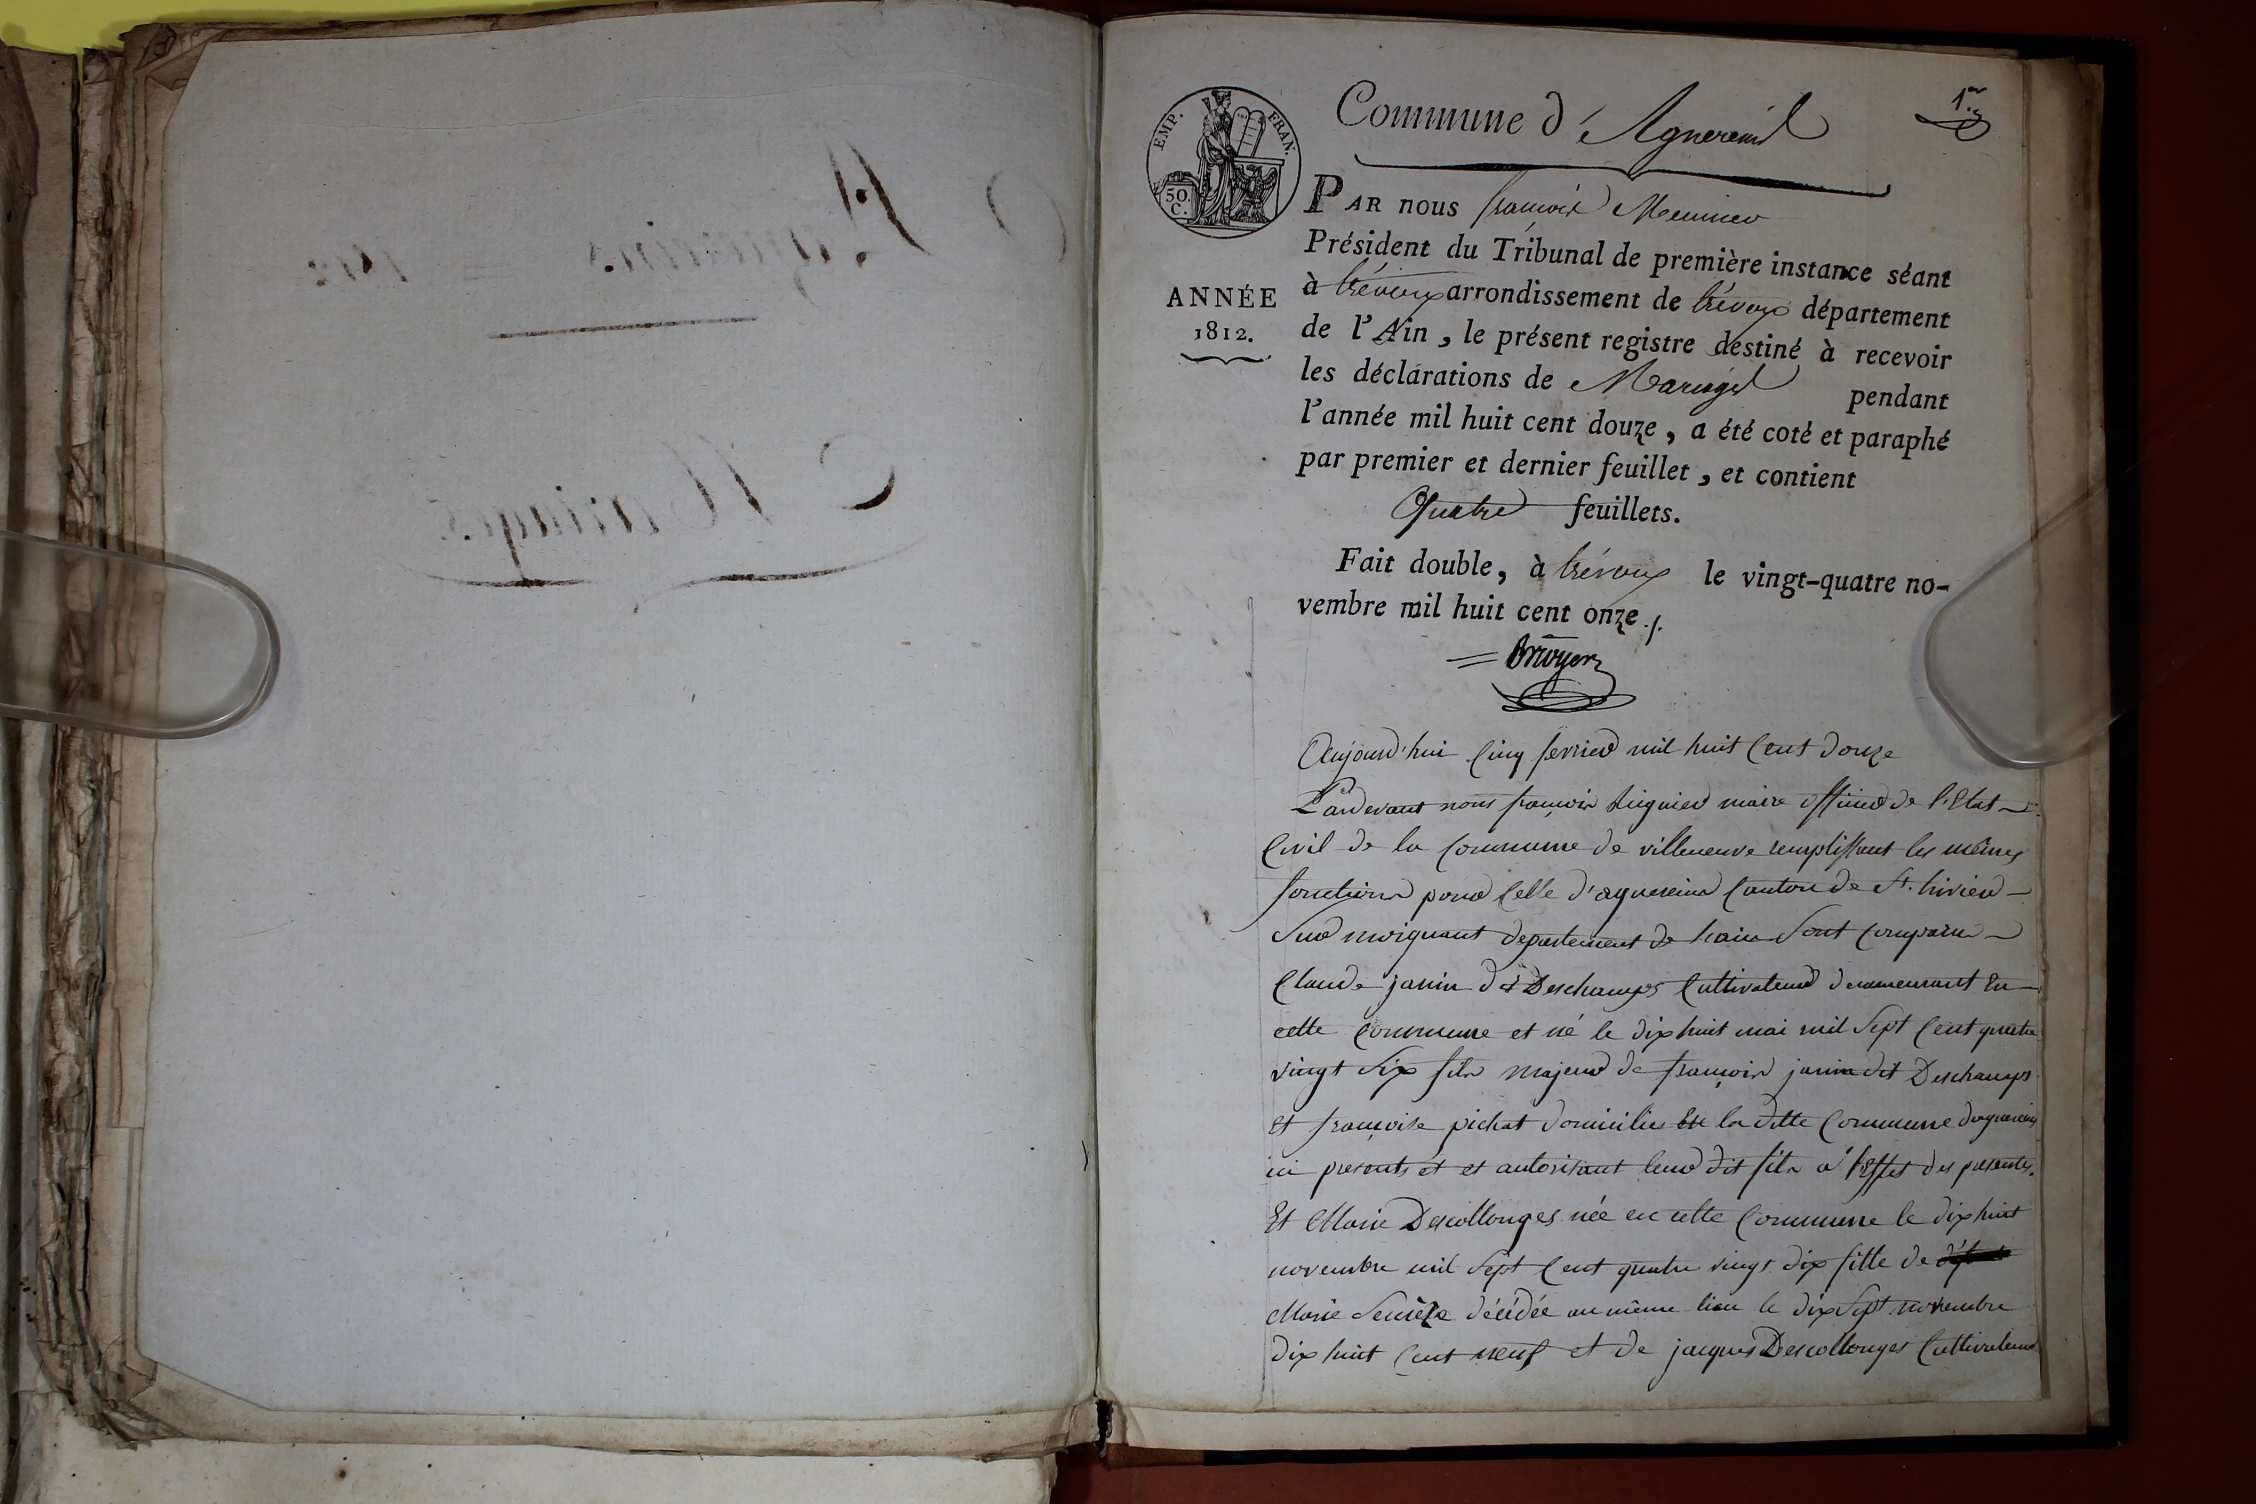 Agnereins = 1812
Mariages
1er
Commune d'Agnereins
EMP. FRAN.
50. C.
ANNÉE
1812.
PAR nous françois
Président du Tribunal de première instance séant
à trévoux arrondissement de trévoux département
de l'Ain, le présent registre destiné à recevoir
les déclarations de Mariages pendant
l'année mil huit cent douze, a été coté et paraphé
par premier et dernier feuillet, et contient
Quatre feuillets.
Fait double, à trévoux le vingt-quatre no-
vembre mil huit cent onze ./.
Aujourd'hui Cinq fevrier mil huit Cent douze
Pardevant nous françois maire officier de l'Etat
Civil de la Commune de villeneuve remplissant les mêmes
fonctions pour Celle d'agnereins Canton de St. trivier
Sur moignant departement de lain Sont Comparus
Claude janin dit Deschamps Cultivateur demeurant En
cette Commune et né le dix huit mai mil Sept Cent quatre
vingt Six fils majeur de françois janin dit Deschamps
et françoise pichat domiciliés En la ditte Commune dagnereins
ici presents et et autorisant leur dit fils a l'effet des presentes.
Et Marie Descollonges née en cette Commune le dix huit
novembre mil Sept Cent quatre vingt dix fille de
Marie décédée au même lieu le dix Sept novembre
dix huit Cent neuf et de jacques Descollonges Cultivateur